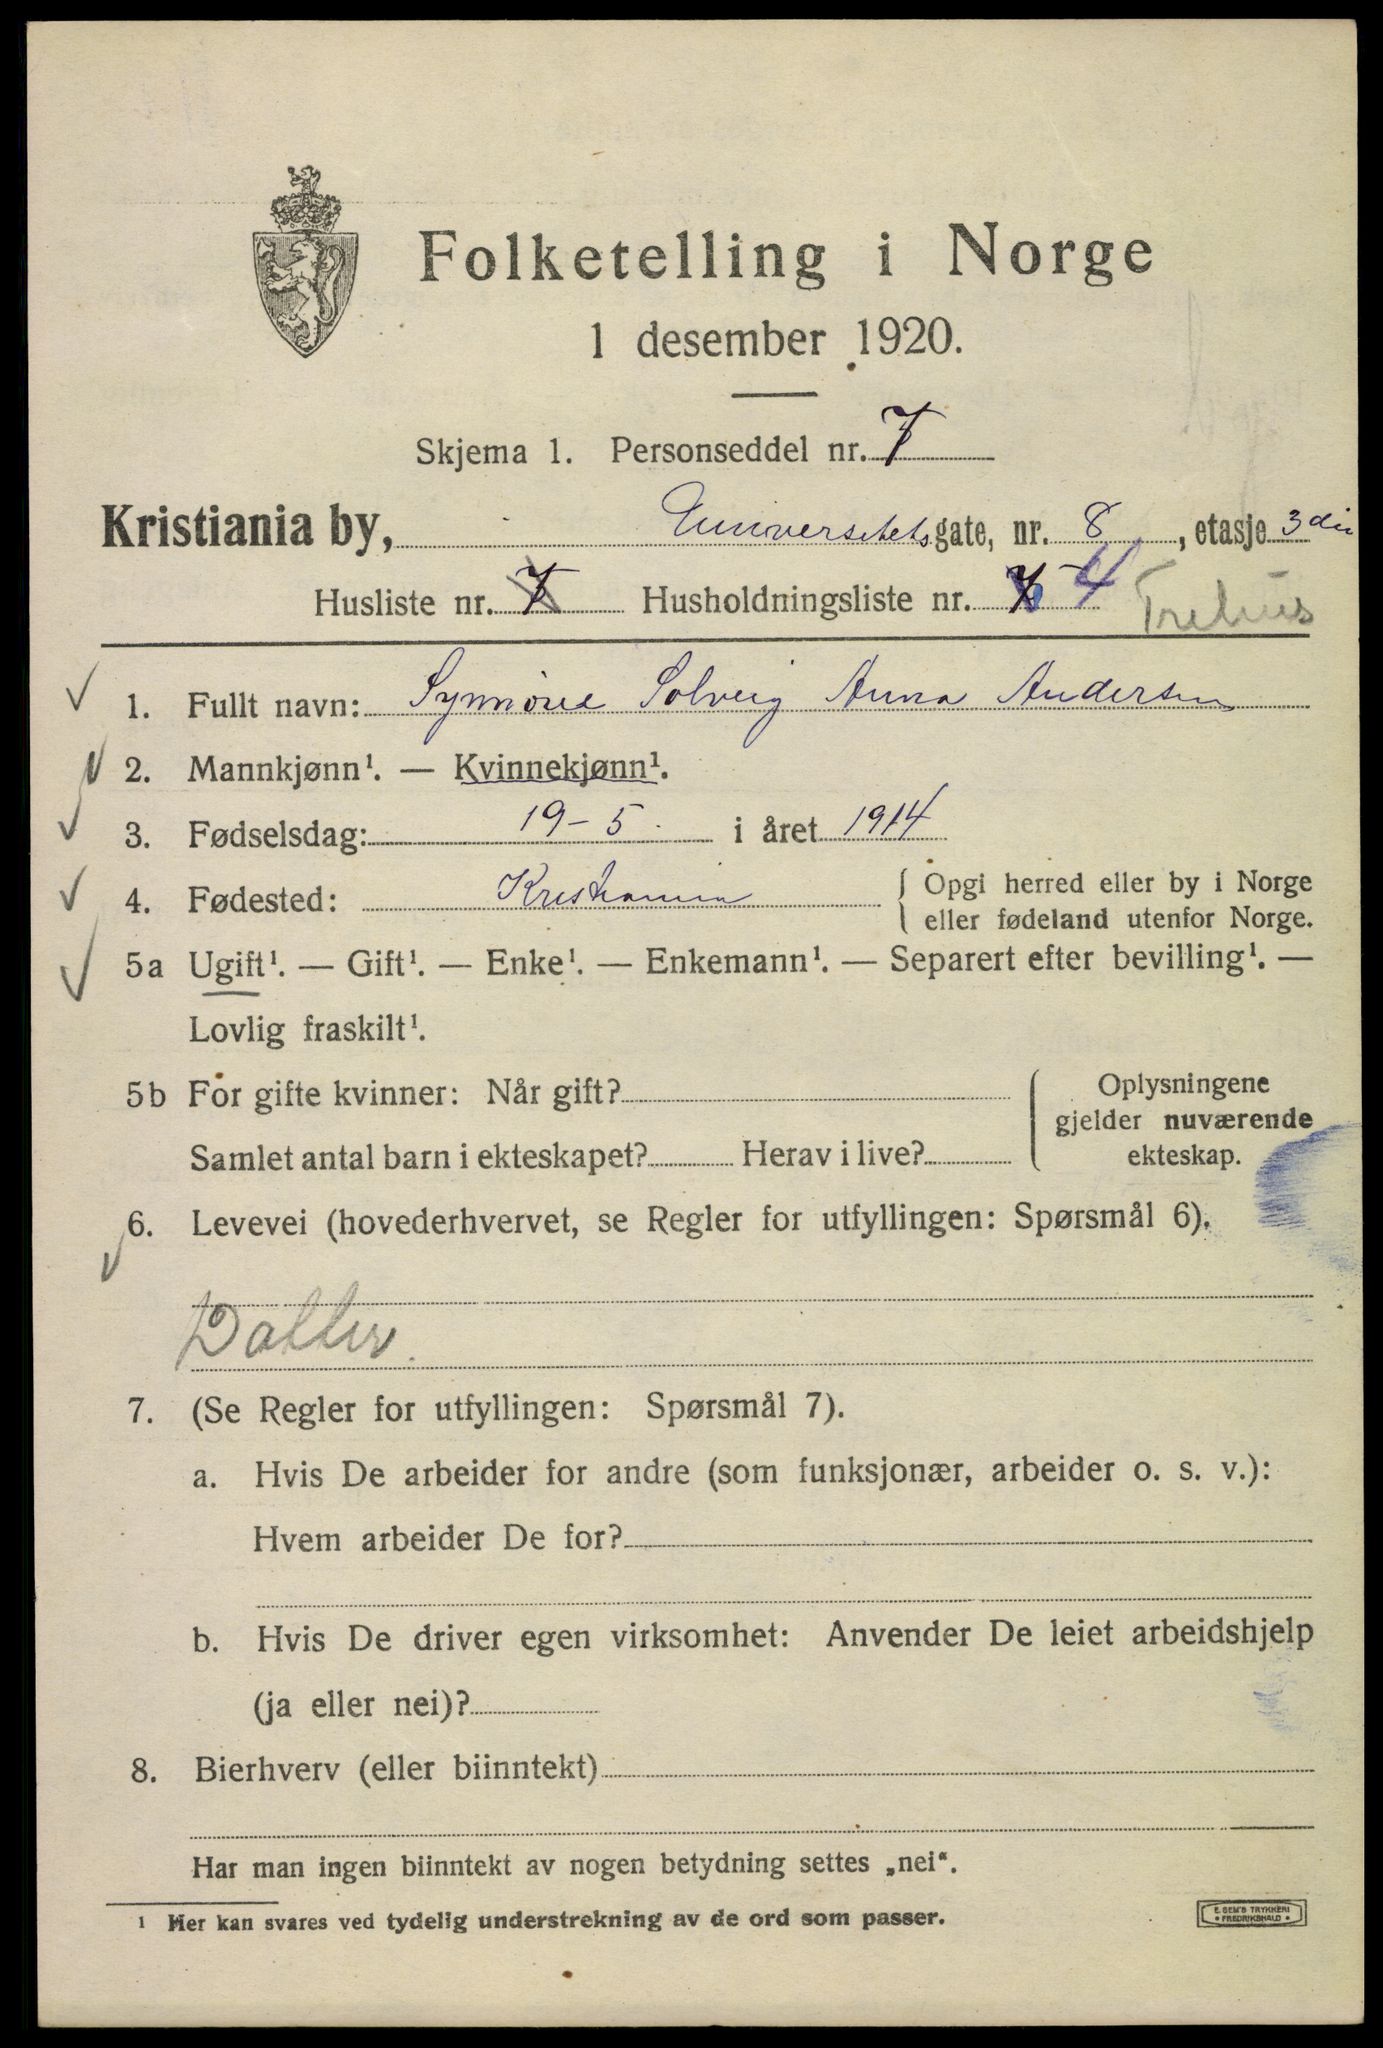 Folketelling i Norge
1 desember 1920.
Skjema 1. Personseddel nr. 7
Kristiania by, Universitetsgate, nr. 8, etasje 3die
Husliste nr. 7 Husholdningsliste nr. 4 Trehus
1. Fullt navn: Synnöve Solveig Anna Andersen
2. Mannkjønn¹. — Kvinnekjønn¹.
3. Fødselsdag: 19-5 i året 1914
4. Fødested: Kristiania { Opgi herred eller by i Norge
eller fødeland utenfor Norge.
5a Ugift¹. — Gift¹. — Enke¹. — Enkemann¹. — Separert efter bevilling¹. —
Lovlig fraskilt¹.
5b For gifte kvinner: Når gift? { Oplysningene
gjelder nuværende
Samlet antal barn i ekteskapet? Herav i live? ekteskap.
6. Levevei (hovederhvervet, se Regler for utfyllingen: Spørsmål 6).
Datter.
7. (Se Regler for utfyllingen: Spørsmål 7).
a. Hvis De arbeider for andre (som funksjonær, arbeider o. s. v.):
Hvem arbeider De for?
b. Hvis De driver egen virksomhet: Anvender De leiet arbeidshjelp
(ja eller nei)?
8. Bierhverv (eller biinntekt)
Har man ingen biinntekt av nogen betydning settes „nei“.
¹ Her kan svares ved tydelig understrekning av de ord som passer.
E. SEM'S TRYKKERI
• FREDRIKSHALD •